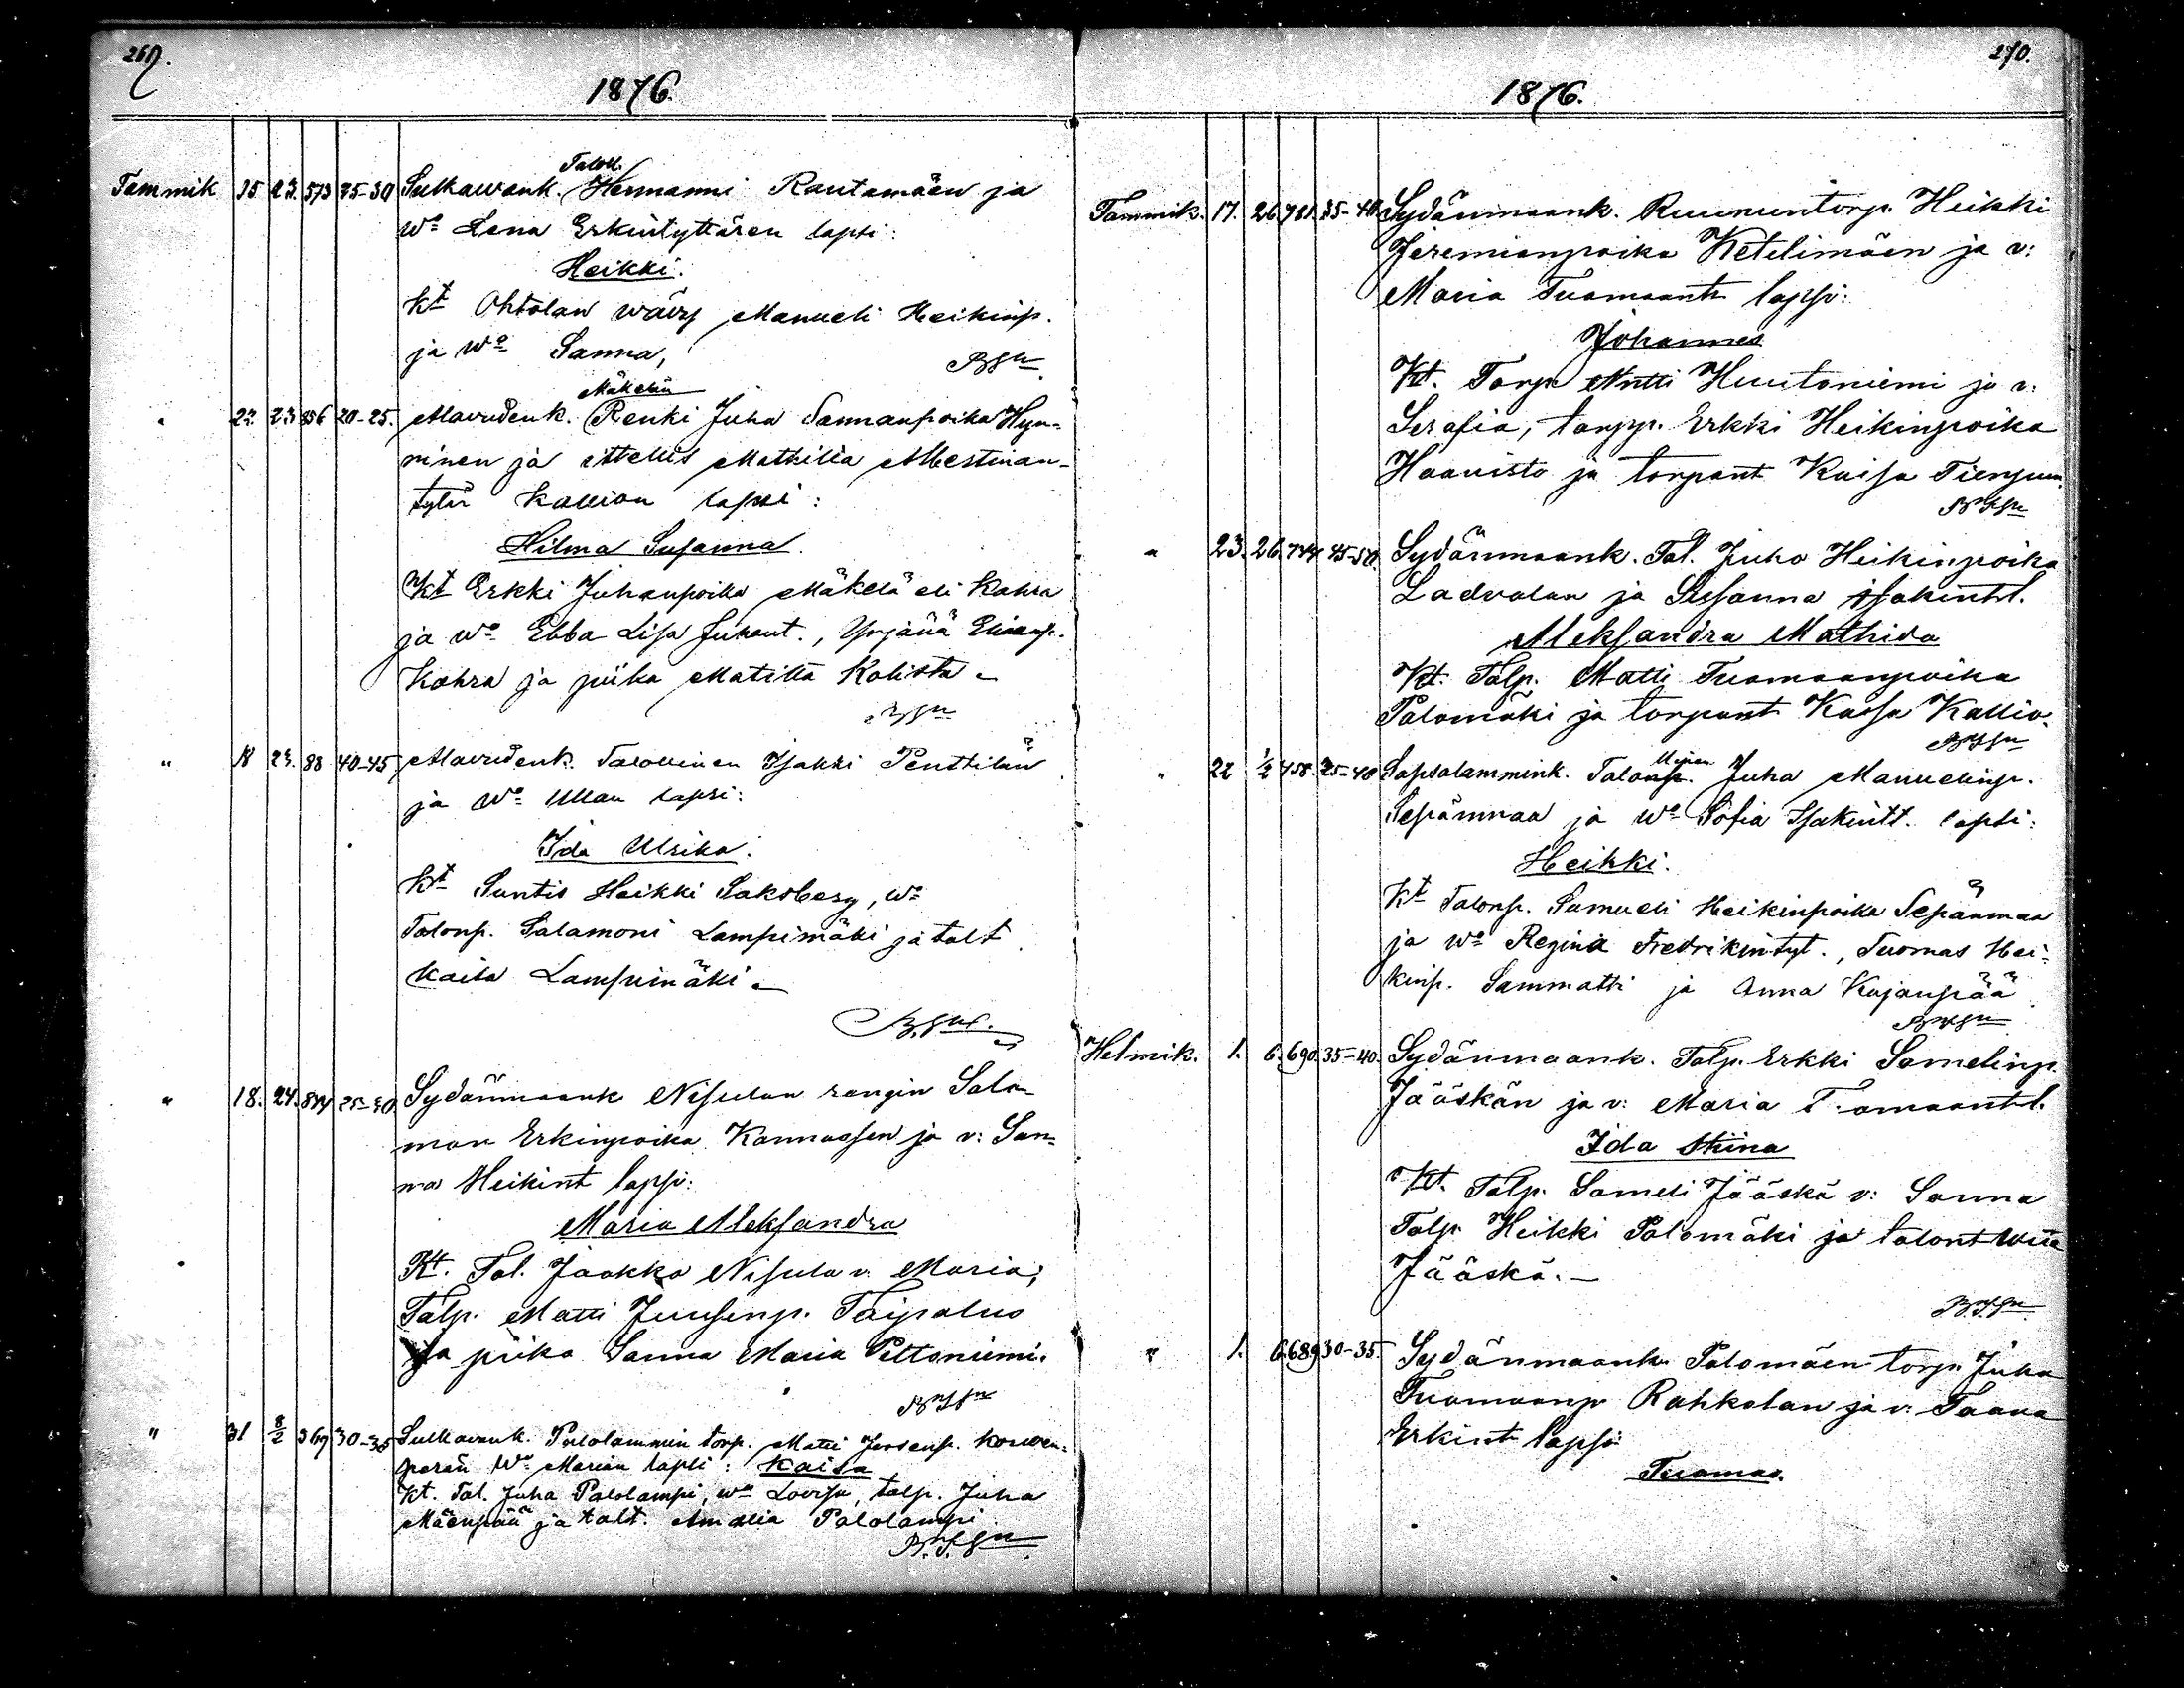 269.
1876.
Taloll.
Tammik 15 23. 573 25-30 Sulkavank. Hermanni Rautamäen ja
Wo Lena Erkintyttären lapsi:
Heikki.
Kt Ohtolan wävy Manueli Heikinp.
ja Wo Sanna,
Mäkelän
" 22. 23 856 20-25. Alavudenk. Renki Juha Sannanpoika Hyn-
ninen ja ittellis Mathilta Albertinan-
tytär Kallion lapsi:
Hilma Susanna.
Kt Erkki Juhanpoika Mäkelä eli Kahra
ja Wo Ebba Lisa Juhant., Yrjänä Eliasp.
Kahra ja piika Matilta Kolista
" 18 23. 88 40-45 Alavudenk. Talollinen Isakki Penttilän
ja Wo Ullan lapsi:
Ida Ulrika.
Kt Suntio Heikki Saksberg, Wo
Talonp. Salamoni Lampimäki ja talt
Kaisa Lampimäki
" 18. 24. 844 25-30 Sydänmaank Nisulan rengin Salo-
mon Erkinpoika Kannassen ja v: San-
na Heikint lapsi:
Maria Aleksandra
Kt. Tal. Jaakko Nisula v. Maria;
Talp. Matti Juusenp. Taipalus
ja piika Sanna Maria Peltoniemi.
" 31 8/2 369 30-35 Sulkavank. Palolammin torp. Matti Joosenp. Korven-
perän Wo Marian lapsi: Kaisa
Kt. Tal. Juha Palolampi, wo Lovisa, talp. Juha
Mäenpää ja talt. Amalia Palolampi
270.
1876.
Tammik. 17. 26. 781. 35-40 Sydänmaank. Ruununtorp. Heikki
Jeremianpoika Ketelimäen ja v:
Maria Tuomaant lapsi:
Johannes
Kt. Torp. Antti Huutoniemi ja v:
Serafia, torpp. Erkki Heikinpoika
Haavisto ja torpant Kaisa
" 23. 26. 744 45-50. Sydänmaank. Tal. Juho Heikinpoika
Ladvalan ja Sussanna Isakintt.
Aleksandra Mathida
Kt. Talp. Matti Tuomaanpoika
Palomäki ja torpant Kaisa Kallio.
" 22 1/2 458. 35-40 Sapsalammink. Talonp. Juha Manuelinp.
Sepänmaa ja Wo Sofia Isakintt. lapsi:
Heikki.
Kt Talonp. Samueli Heikinpoika Sepänmaa
ja Wo Regina Fredrikintyt., Tuomas Hei-
kinp. Sammatti ja Anna Kajanpää
Helmik. 1. 6. 690. 35-40. Sydänmaank. Talp. Erkki Samelinp.
Jääskän ja v: Maria Tuomaantt.
Ida Stiina
Kt. Talp. Sameli Jääskä v: Sanna
Talp. Heikki Palomäki ja talont
Jääskä.
" 1. 6. 689 30-35. Sydänmaank Palomäen torp. Juha
Tuomaanp Rahkolan ja v. Saara
Erkint lapsi
Tuomas.